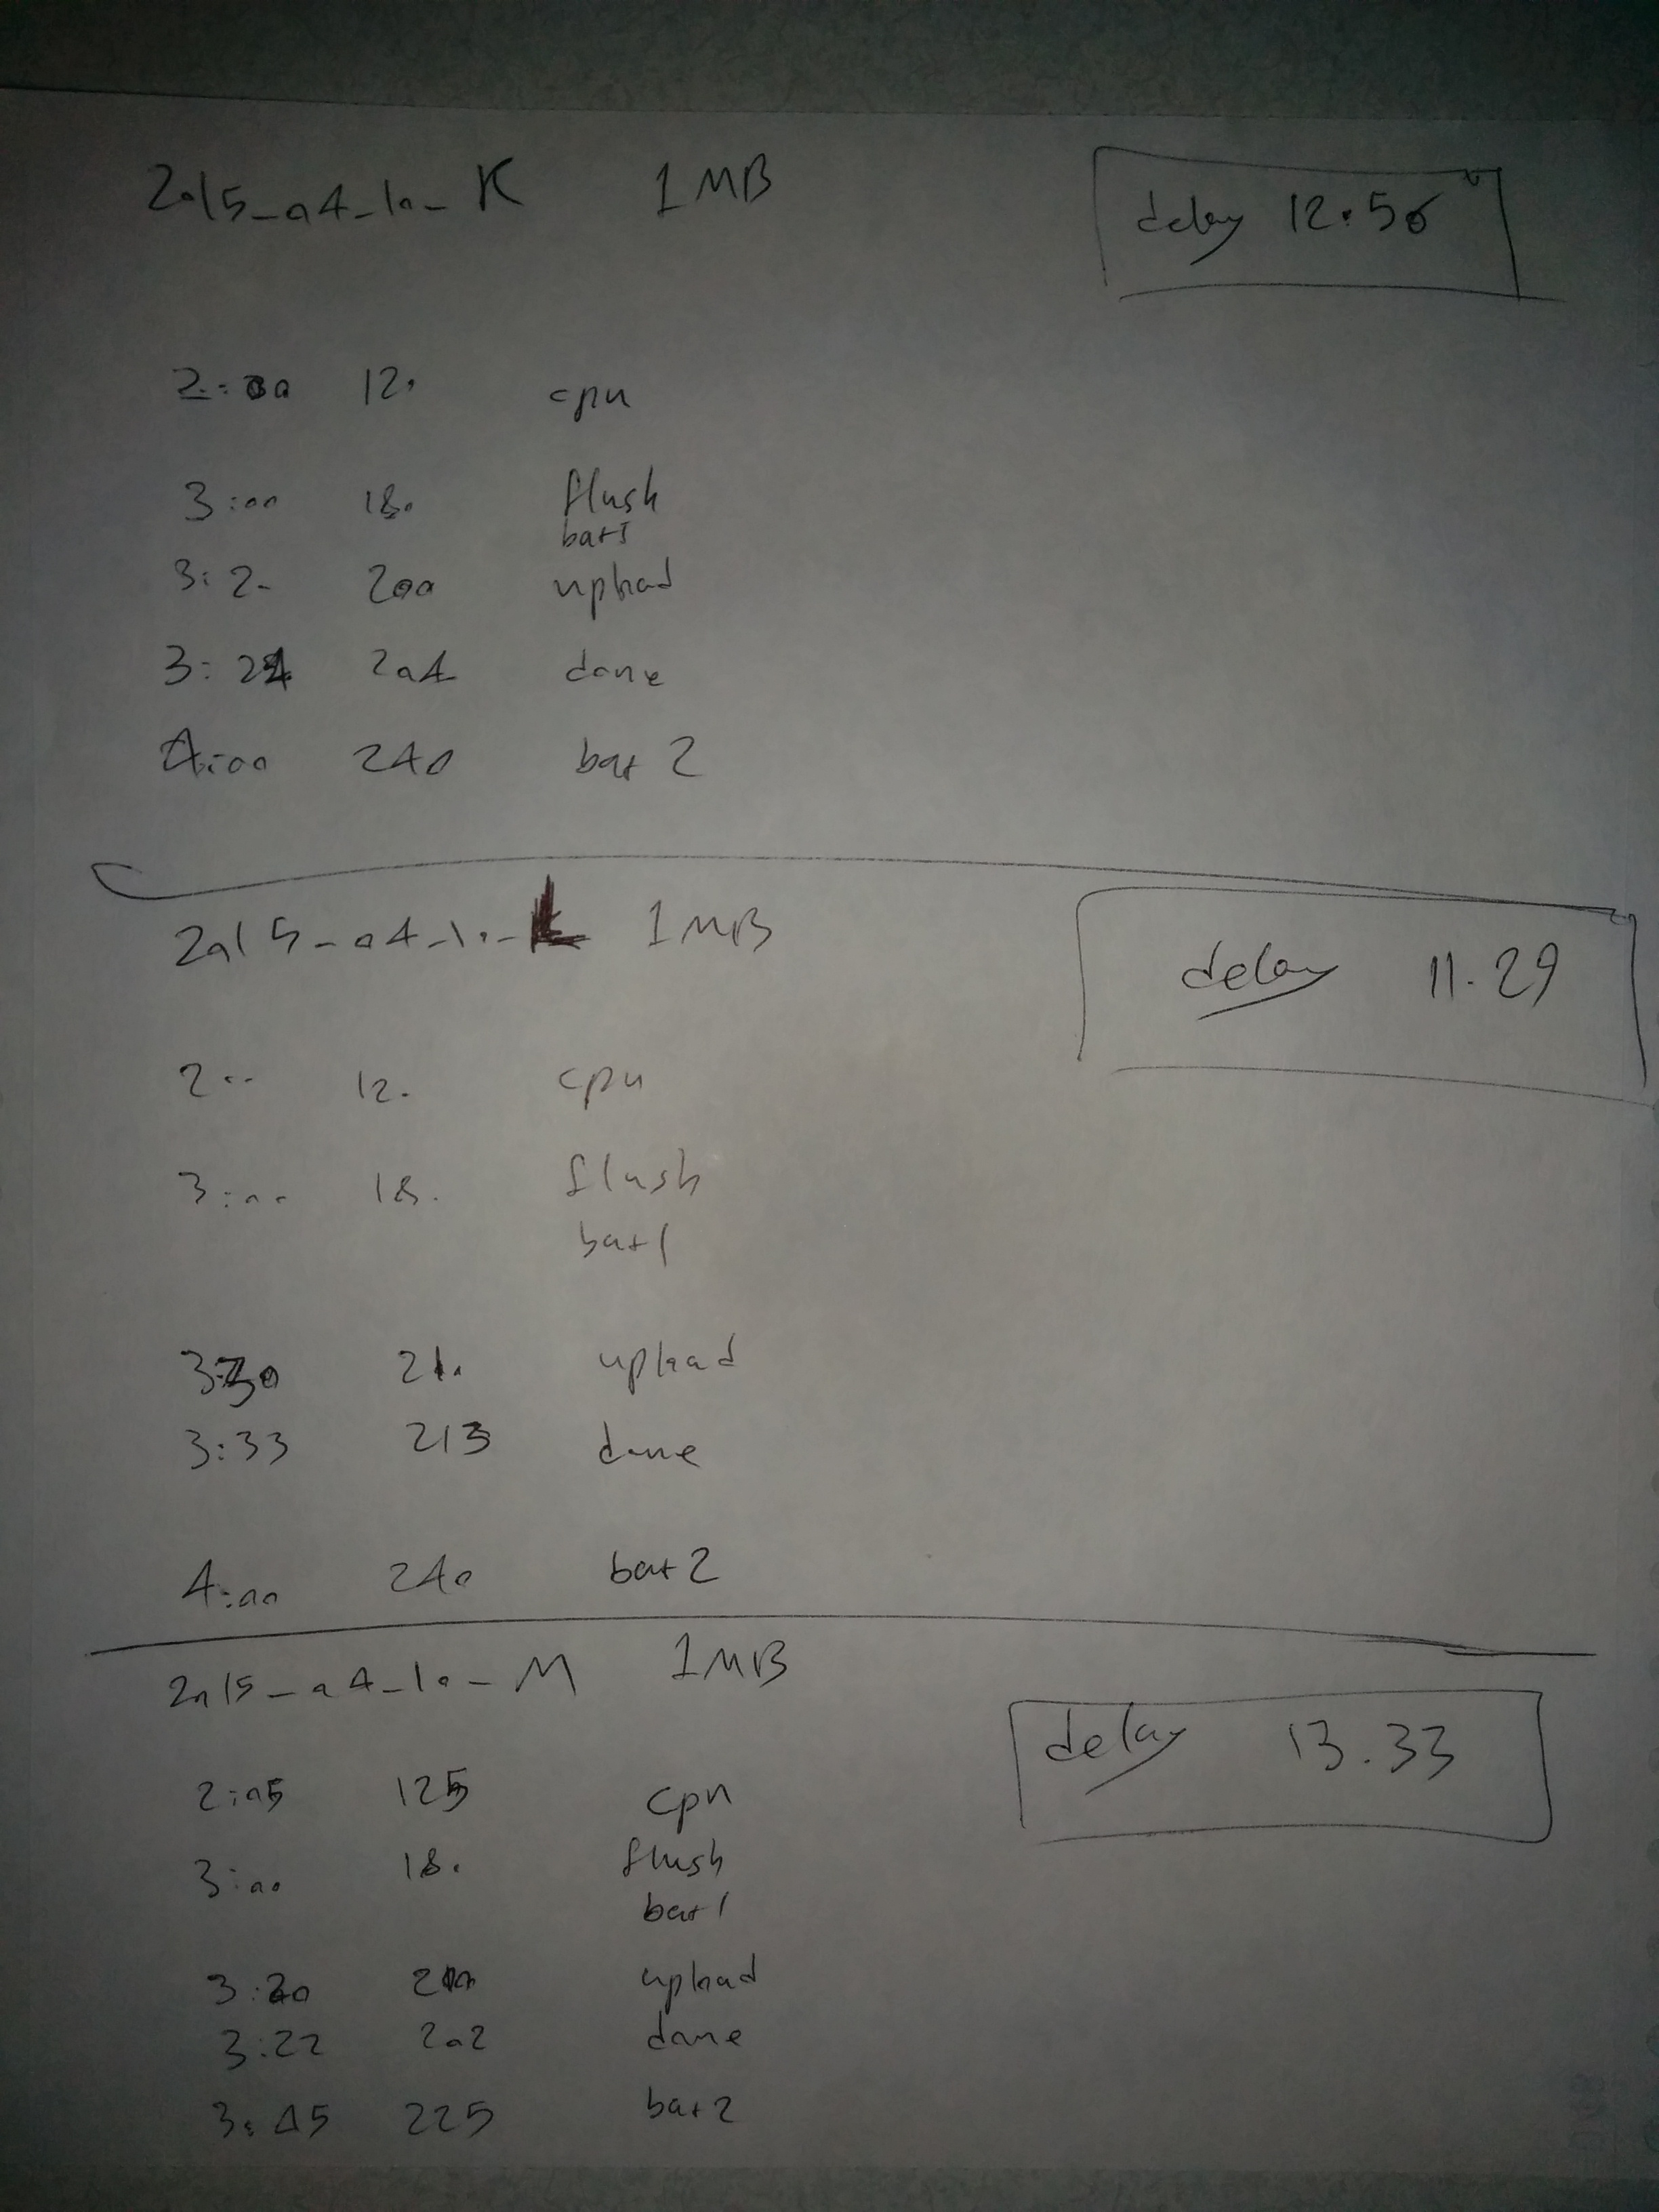 2015_04_10_K 1MB
delay 12.56
2:00 120 cpu
3:00 180 flush
bat1
3:20 200 upload
3:24 204 done
4:00 240 bat 2
2015_04_10_L 1MB
delay 11.29
2:00 120 cpu
3:00 180 flush
bat1
3:30 210 upload
3:33 213 done
4:00 240 bat2
2015_04_10_M 1MB
delay 13.33
2:05 125 cpu
3:00 180 flush
bat1
3:20 200 upload
3:22 202 done
3:45 225 bat2